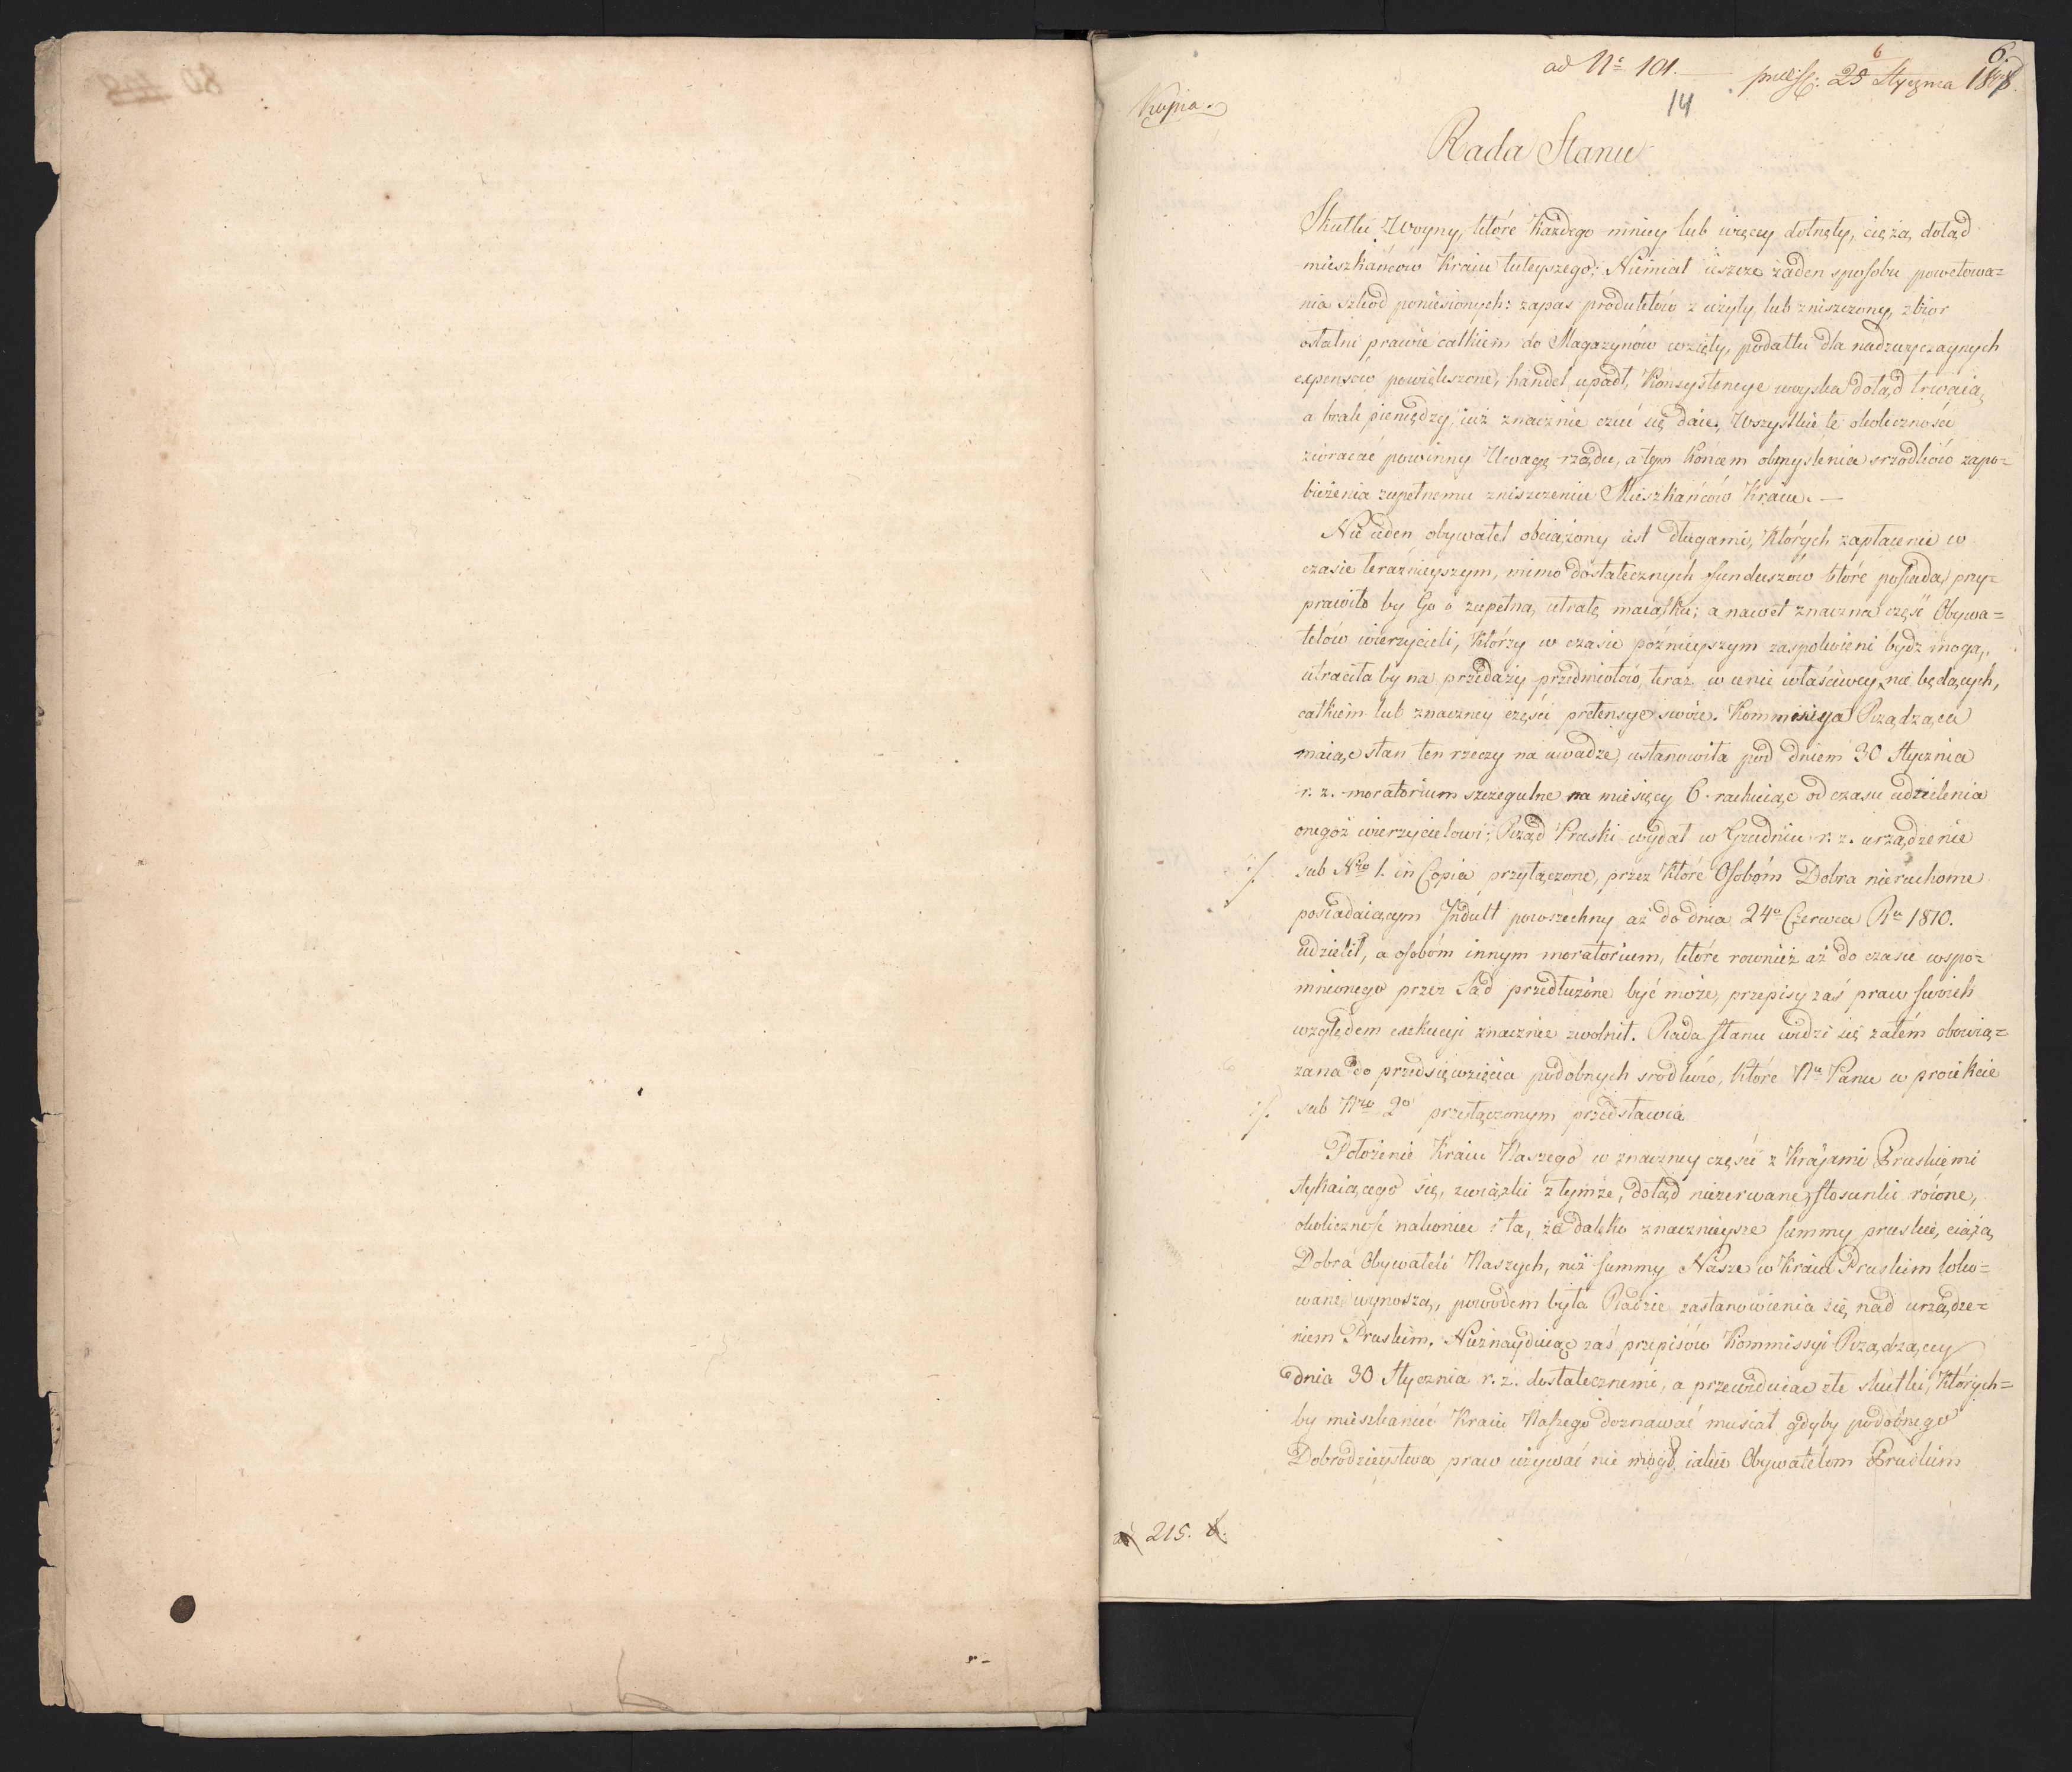 ad No 101. — 25 Stycznia 1808.
6
6.
14
Kopia.
Rada Stanu
Skutki Woyny, które Każdego mniey lub więcey dotnęły, ciężą dotąd
mieszkańców Kraiu tuteyszego: Niemiał ieszcze żaden sposobu powetowa=
nia szkod poniesionych: zapas produktów zużyty, lub zniszczony, zbior
ostatni prawie całkiem do Magazynów wzięty, podatki dla nadzwyczaynych
expensów powiększone, handel upadł, Konsystencye woyska dotąd trwaią,
a brak pieniędzy iuż znacznie czuć się daie. Wszystkie te okoliczności
zwracać powinny Uwagę rządu, a tym Końcem obmyslenia srzodków zapo=
bieżenia zupełnemu zniszczeniu Mieszkańców Kraiu. —
Nie ieden obywatel obciążony iest długami, Których zapłacenie w
czasie teraznieyszym, mimo dostatecznych funduszów które posiada, przy=
prawiło by Go o zupełną utratę maiątku; a nawet znaczna część Obywa=
telów wierzycieli, Którzy w czasie poźnieyszym zaspokoieni bydz mogą,
utraciła by na przedaży przedmiotów, teraz w cenie właściwey nie będących,
całkiem lub znaczney części pretensye swoie. Kommissya Rządząca
maiąc stan ten rzeczy na uwadze, ustanowiła pod dniem 30 Stycznia
r. z. moratorium szczegulne na miesięcy 6. rachuiąc od czasu udzielenia
onegoż wierzycielowi; Rząd Pruski wydał w Grudniu r. z. urządzenie
sub Nro 1. in Copia przyłączone, przez Które Osobóm Dobra nieruchome
posiadaiącym Indult powszechny aż do dnia 24o Czerwca Ru 1810.
udzielił, a osobóm innym moratorium, które rownież aż do czasu wspo=
mnionego przez Sąd przedłużone być może, przepisy zaś praw swoich
względem exekucyi znacznie zwolnił. Rada Stanu widzi się zatém obowią=
zana do przedsięwzięcia podobnych srodków, Które Nu Panu w proiekcie
sub Nro 2o przyłączonym przedstawia
Położenie Kraiu Naszego w znaczney części z Kraiami Pruskiemi
stykaiącego się, związki z tymże, dotąd niezerwane, stosunki rożne,
okoliczność nakoniec i ta, że daleko znacznieysze summy pruskie, ciążą
Dobra Obywateli Naszych, niż summy Nasze w Kraiu Pruskim loko=
wane wynoszą, powodem była Radzie zastanowienia się nad urządze=
niem Pruskim. Nieznayduiąc zaś przepisów Kommissyi Rządzącey
dnia 30 Stycznia r. z. dostatecznemi, a przewiduiąc złe skutki, Których=
by mieszkaniec Kraiu Naszego doznawać musiał gdyby podobnego
Dobrodzieystwa praw używać nie mógł, iakie Obywatelom Pruskim
215.